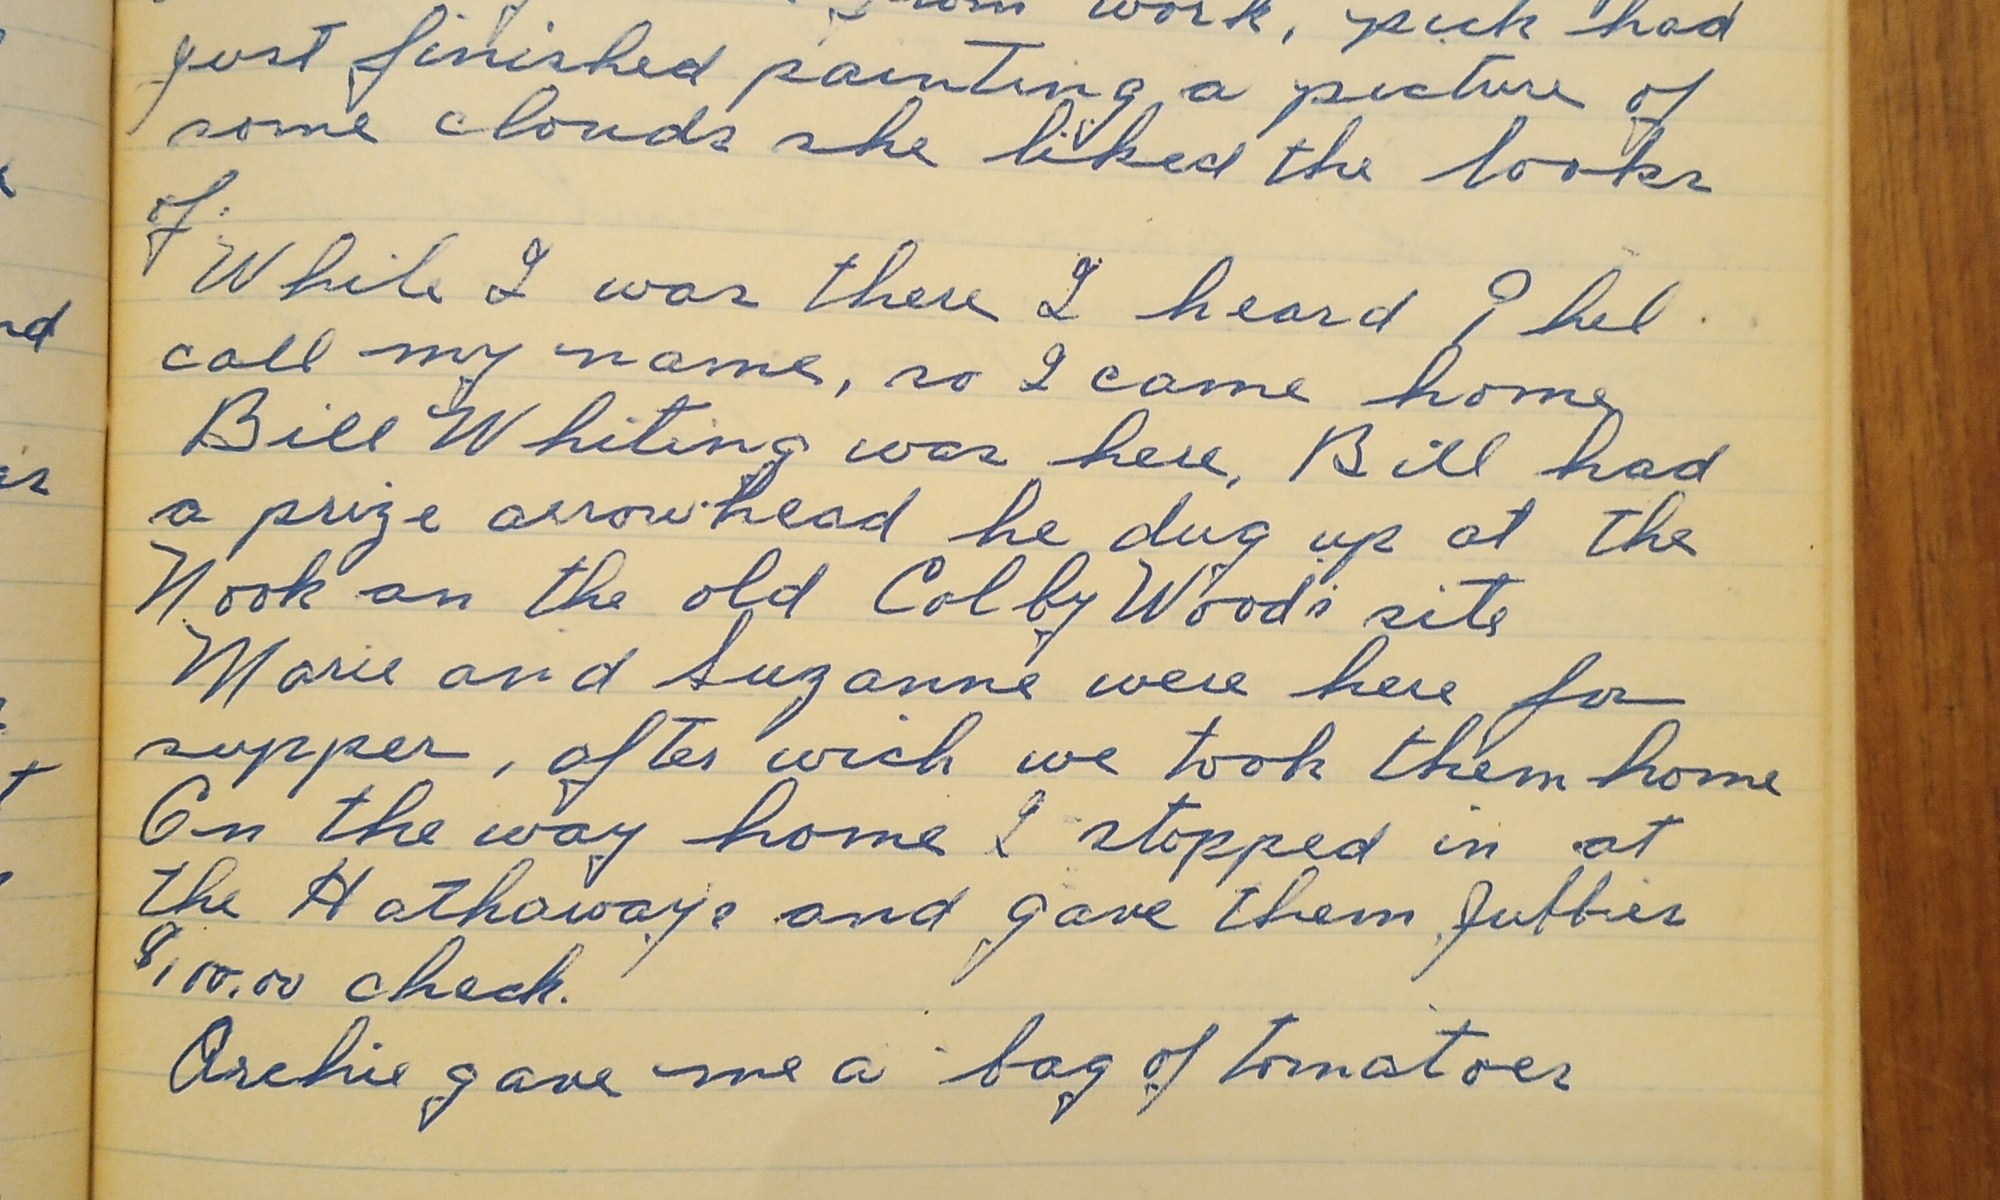 from work, puck had
just finished painting a picture of
some clouds she liked the looks
of.
While I was there I heard Phel
call my name, so I came home
Bill Whiting was here, Bill had
a prize arrowhead he dug up at the
Nook on the old Colby Wood's site
Marie and Suzanne were here for
supper, after wich we took them home
On the way home I stopped in at
the Hathaways and gave them
$100.00 check.
Archie gave me a bag of tomatoes